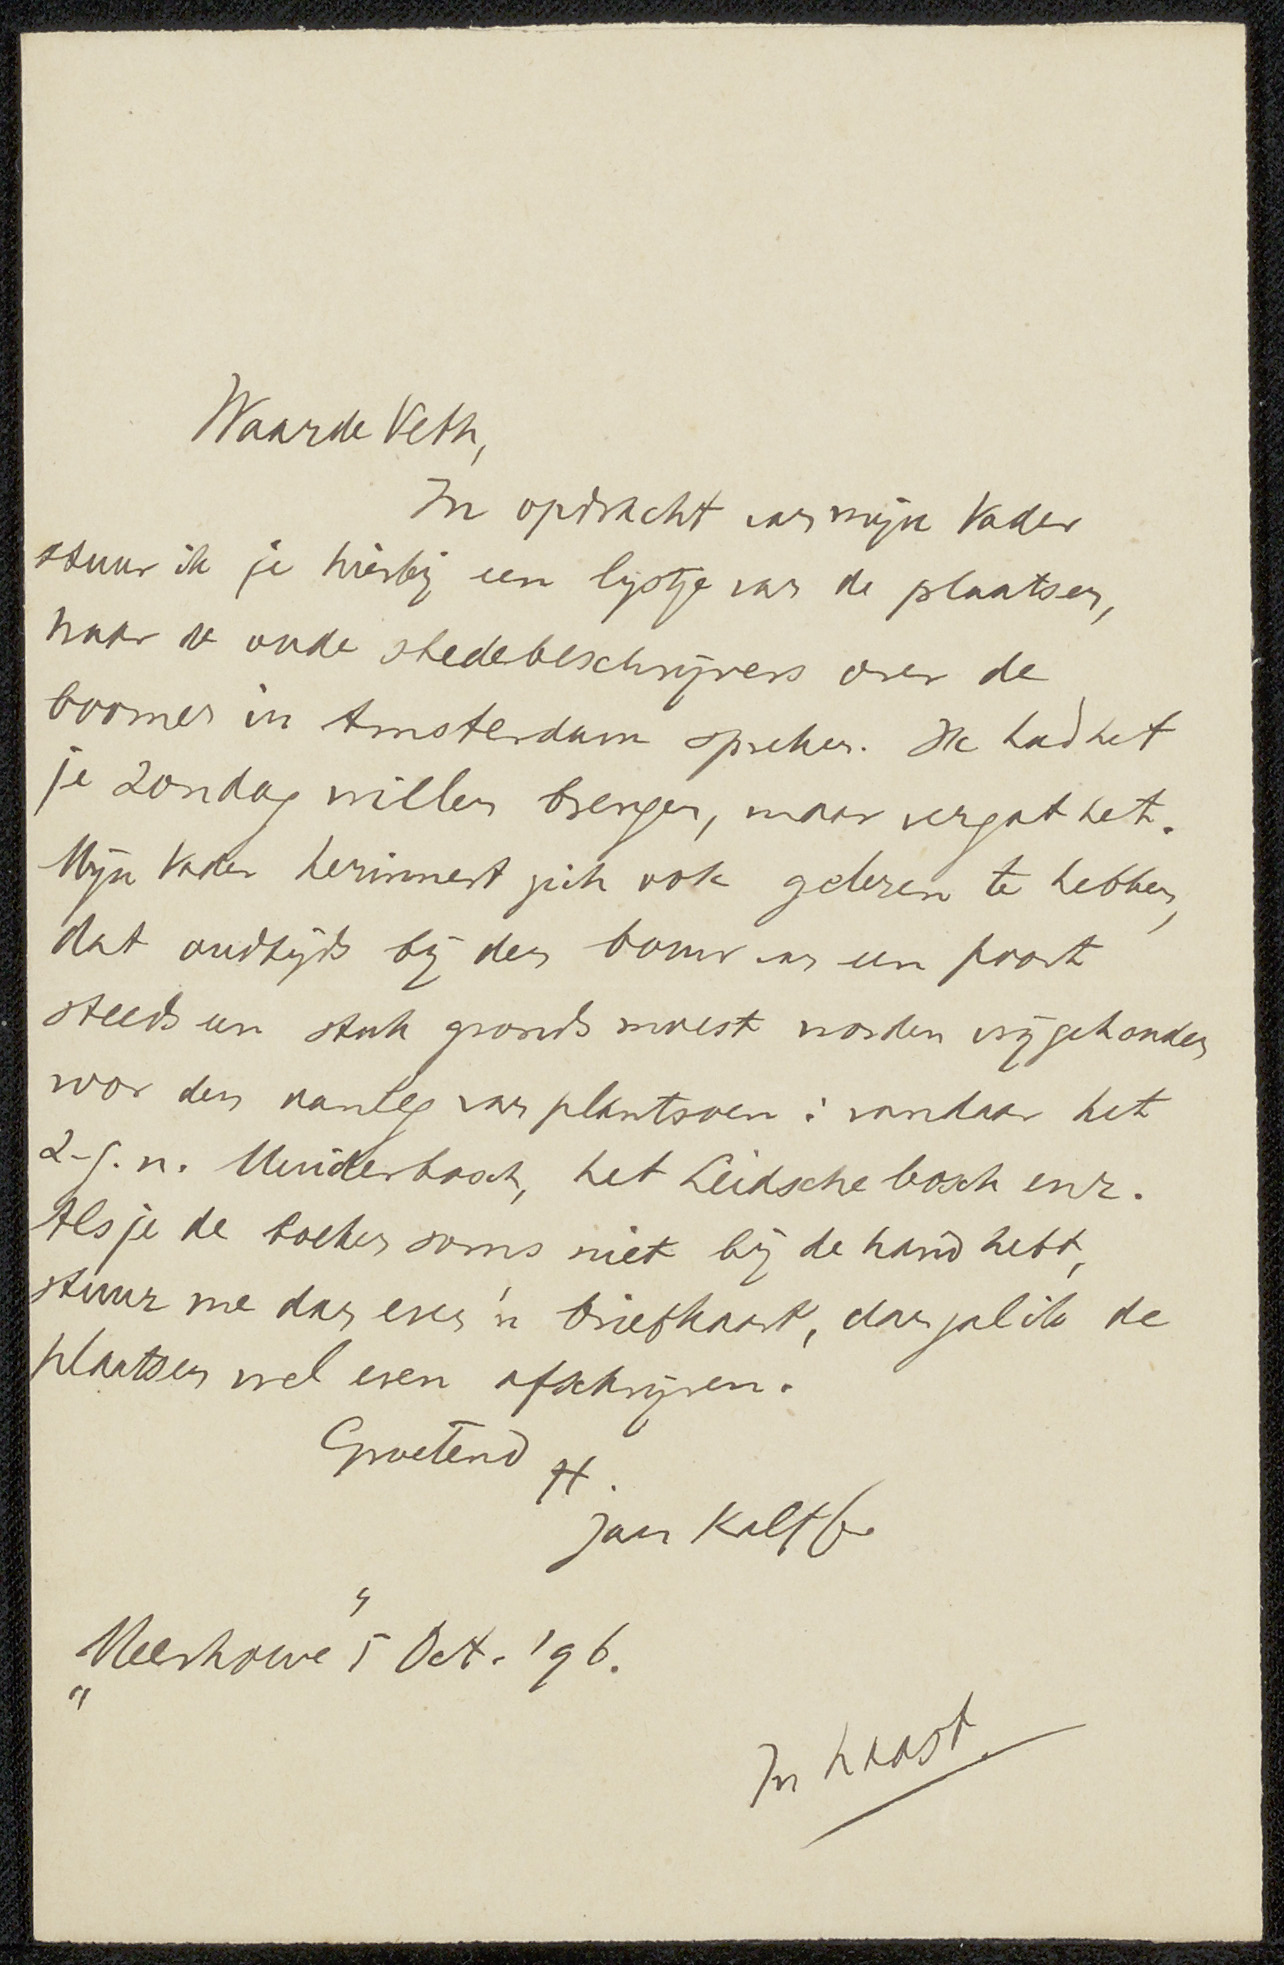 Waarde Veth,
In opdracht van mijn Vader
stuur ik je hierbij een lijstje van de plaatsen,
waar de oude stedebeschrijvers over de
boomen in Amsterdam spreken. Ik had het
je Zondag willen brengen, maar vergat het.
Mijn Vader herinnert zich ook gelezen te hebben,
dat oudtijds bij den bouw van een poort
steeds een stuk gronds moest worden vrijgehouden
voor den aanleg van plantsoen: vandaar het
z-g.n. Muiderbosch, het Leidsche bosch enz.
Als je de boeken soms niet bij de hand hebt,
stuur me dan even 'n briefkaart, dan zal ik de
plaatsen wel even afschrijven.
Groetend
tt.
Jan Kalff Jr.
"Meerhoeve" 5 Oct. '96.
In haast.